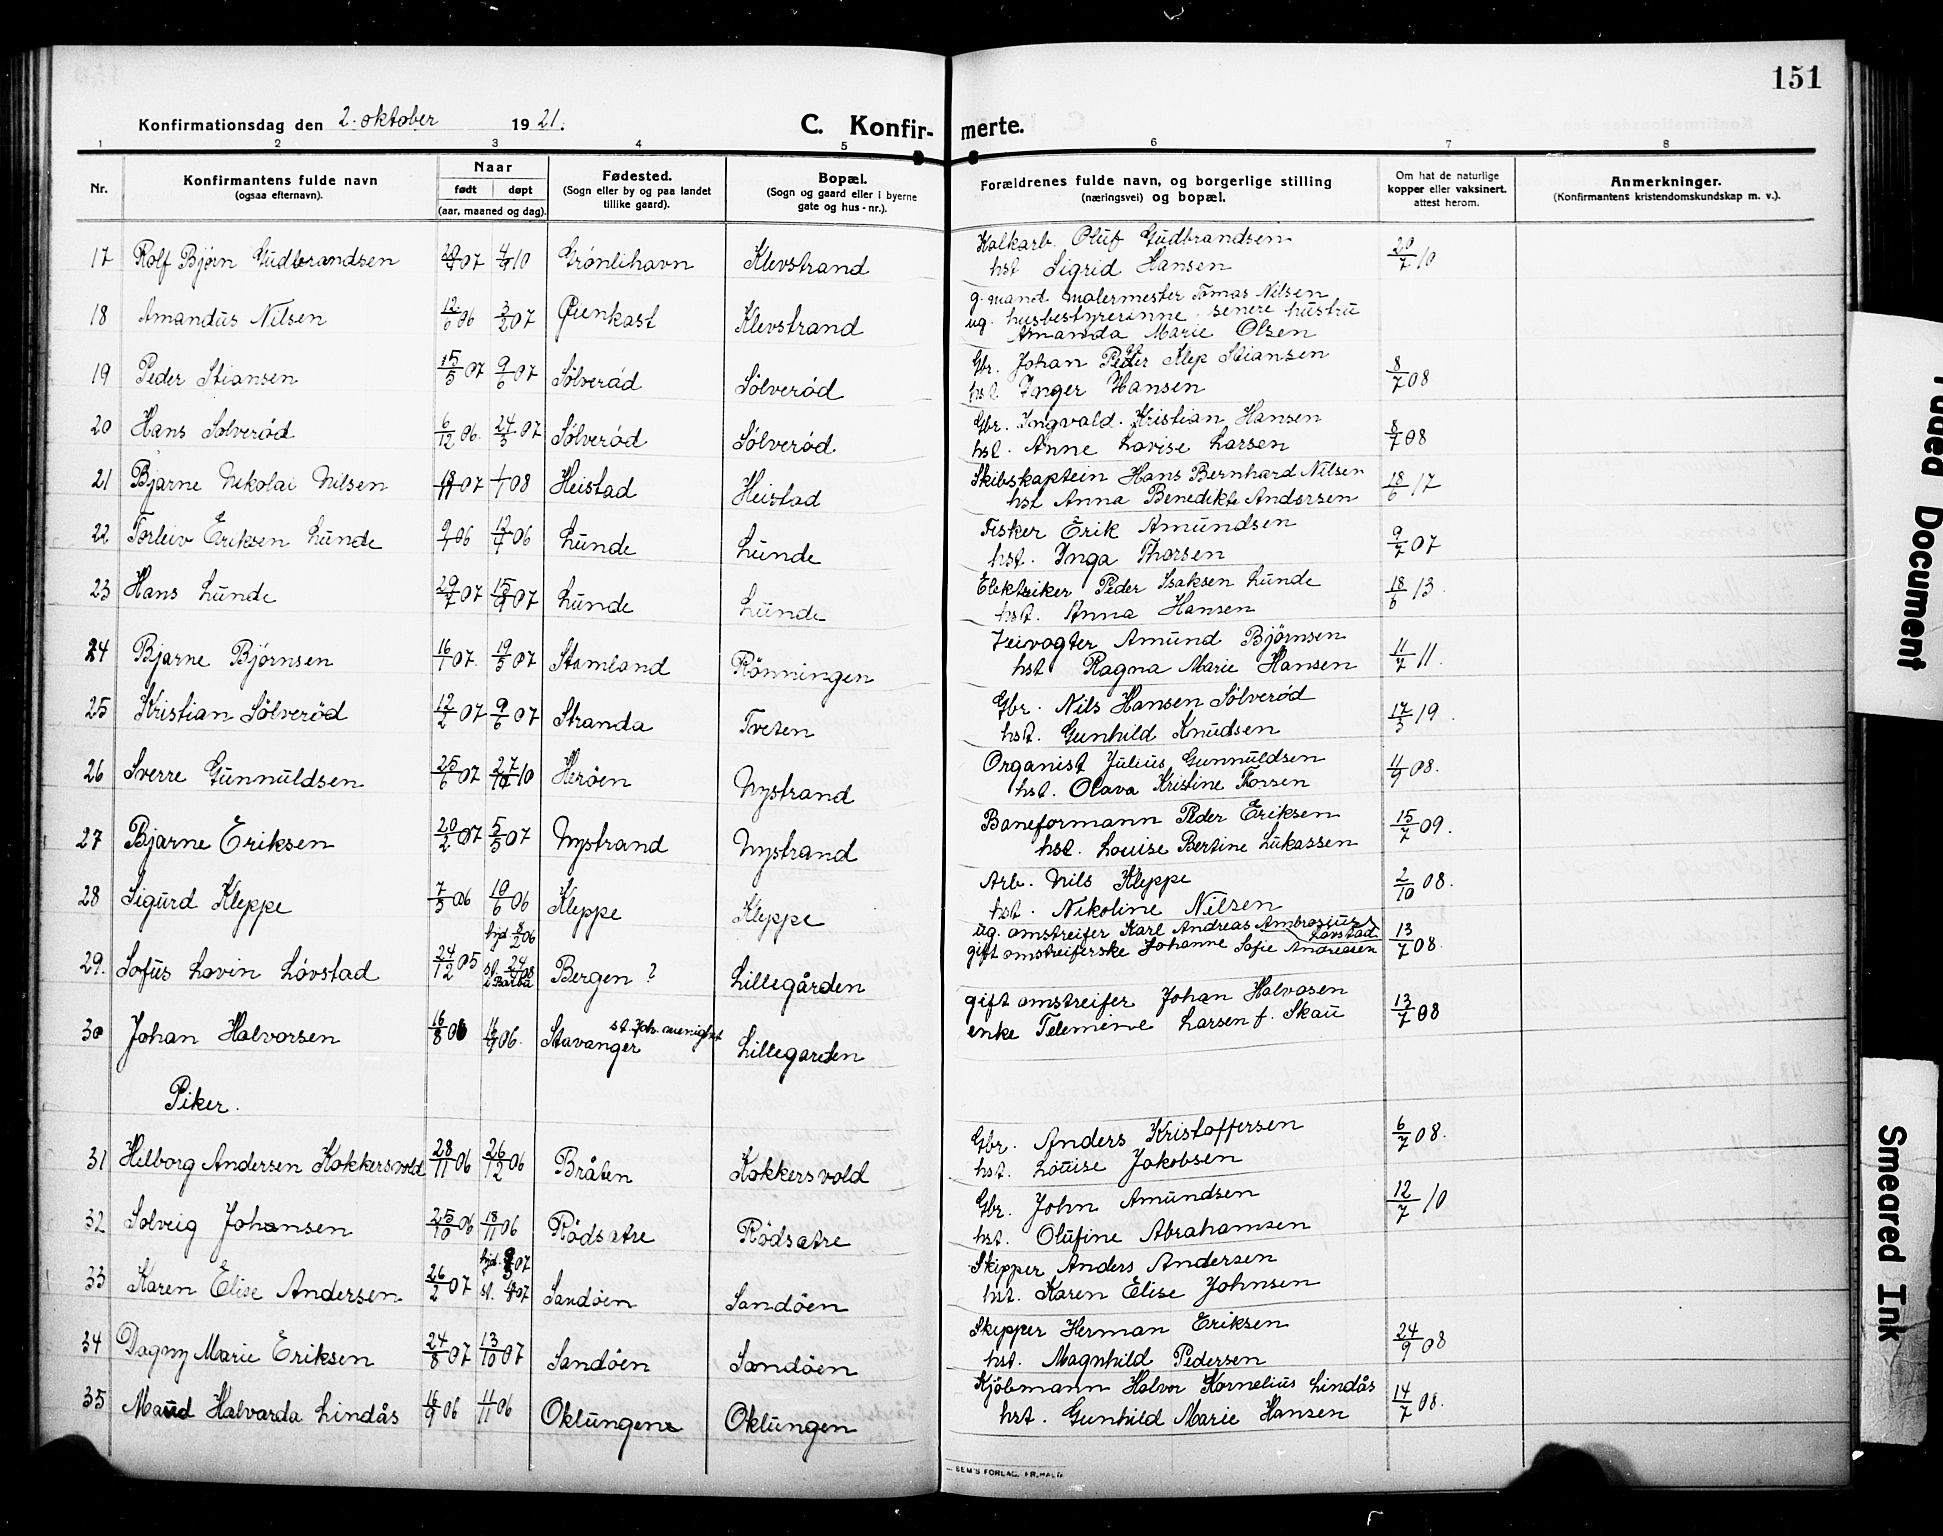 151
Konfirmationsdag den 2. oktober 1921.
C. Konfir- merte.
1 2 3 4 5 6 7 8
Nr.
Konfirmantens fulde navn
(ogsaa efternavn).
Naar
født døpt
(aar, maaned og dag).
Fødested.
(Sogn eller by og paa landet
tillike gaard).
Bopæl.
(Sogn og gaard eller i byerne
gate og hus-nr.).
Forældrenes fulde navn, og borgerlige stilling
(næringsvei) og bopæl.
Om hat de naturlige
kopper eller vaksinert.
attest herom.
Anmerkninger.
(Konfirmantens kristendomskundskap m. v.).
17 Rolf Bjørn Gudbrandsen 07 10 Grønlihavn Klevstrand
Kalkarb. Oluf Gudbrandsen 20/7 10
hst Sigrid Hansen
18 Amandus Nilsen 12/6 06 3/2 07 Øienkast Klevstrand
g. mand malermester Tomas Nilsen
ug. husbestyrerinne, senere hustru
Amanda Marie Olsen
19 Peder Stiansen 15/5 07 9/6 07 Sølverød Sølverød
Gbr. Johan Peder Klep Stiansen 8/7 08
hst. Inger Hansen
20 Hans Sølverød 6/12 06. 24/3 07 Sølverød Sølverød
Gbr. Ingvald Kristian Hansen 8/7 08
hst. Anne Lovise Larsen
21 Bjarne Nikolai Nilsen 07 1/1 08 Heistad Heistad
Skibskaptein Hans Bernhard Nilsen 18/6 17
hst Anna Benedikte Andersen
22 Torleiv Eriksen Lunde 06 06 Lunde Lunde
Fisker Erik Amundsen 9/7 07
hst. Inga Thorsen
23 Hans Lunde 29/7 07 15/9 07 Lunde Lunde
Elektriker Peder Isaksen Lunde 18/6 13.
hst. Anna Hansen
24 Bjarne Bjørnsen 16/1 07. 19/5 07 Stamland Rønningen
Veivogter Amund Bjørnsen 11/7 11.
hst Ragna Marie Hansen
25 Kristian Sølverød 12/2 07 9/6 07 Stranda Tveten
Gbr. Nils Hansen Sølverød 17/3 19.
hst. Gunhild Knudsen
26 Sverre Gunnuldsen 25/6 07 27/10 10 Herøen Nystrand
Organist Julius Gunnuldsen 11/9 08.
hst. Olava Kristine Torsen
27 Bjarne Eriksen 20/2 07 5/5 07 Nystrand Nystrand
Baneformann Peder Eriksen 15/7 09.
hst. Louise Bertine Lukassen
28 Sigurd Kleppe 7/3 06 10/6 06 Kleppe Kleppe
Arb. Nils Kleppe 2/10 08.
hst. Nikoline Nilsen
29. Sofus Lavin Løvstad 24/12 05 hjd 06 st. 24/ 08 i Bamble Bergen ? Lillegården
ug. omstreifer Karl Andreas Ambrosiussen Løvstad 13/7 08.
gift omstreiferske Johanne Sofie Andreasen
30 Johan Halvorsen 16/8 06 06. Stavanger st. Joh. menighet Lillegarden
gift omstreifer Johan Halvosen 13/7 08
enke Telemine Larsen f. Skau
Piker.
31 Helborg Andersen Kokkersvold 28/11 06 26/12 06 Bråten Kokkersvold
Gbr. Anders Kristoffersen 6/7 08.
hst. Louise Jakobsen
32 Solveig Johansen 25/10 06 18/11 06 Rødsætre Rødsætre
Gbr. John Amundsen 12/7 10
hst. Olufine Abrahamsen
33 Karen Elise Andersen 26/2 07 hjd. 07 st. 07 Sandøen Sandøen
Skipper Anders Andersen
hst. Karen Elise Johnsen
34 Dagny Marie Eriksen 24/8 07 13/10 07 Sandøen Sandøen
Skipper Herman Eriksen 24/9 08
hst. Magnhild Pedersen
35 Maud Halvarda Lindås 16/9 06 11/11 06 Oklungene Oklungen
Kjøbmann Halvor Kornelius Lindås 14/7 08.
hst. Gunhild Marie Hansen
SEM'S FORLAG, FR.HALD
Faded Document
Smeared Ink